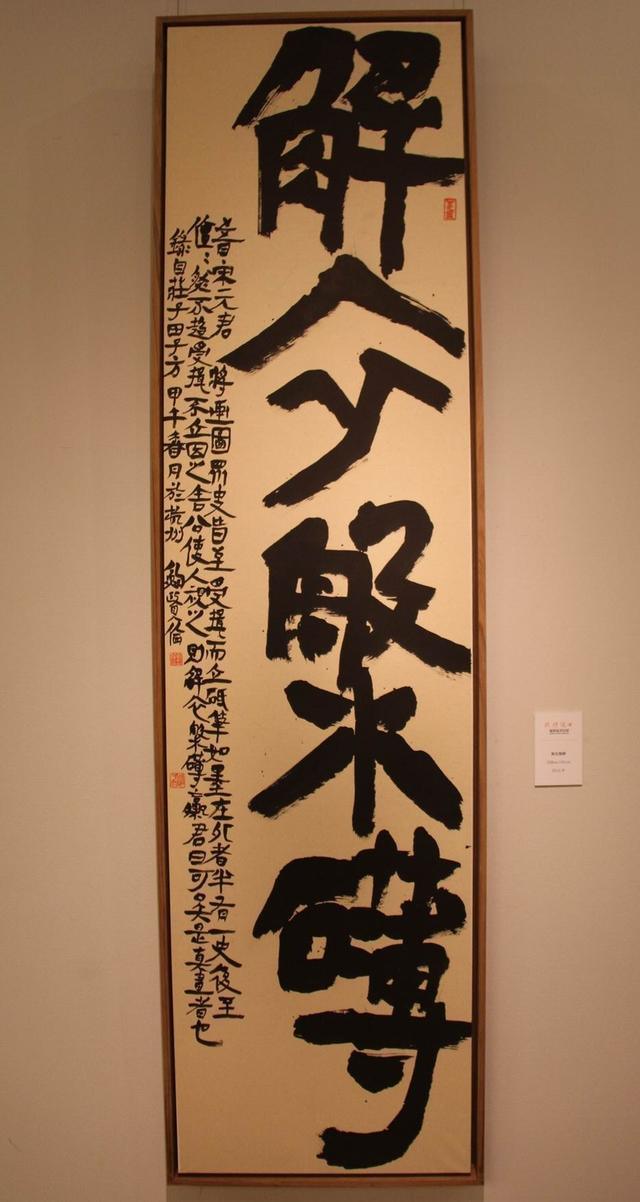 解衣槃礴
昔宋元君將畫圖眾史皆至受揖而立舐筆和墨在外者半有一史後至
儃儃然不趨受揖不立因之舍公使人視之則解衣槃礴臝君曰可矣是真畫者也
錄自莊子田子方 甲午春月於杭州 鮑賢倫